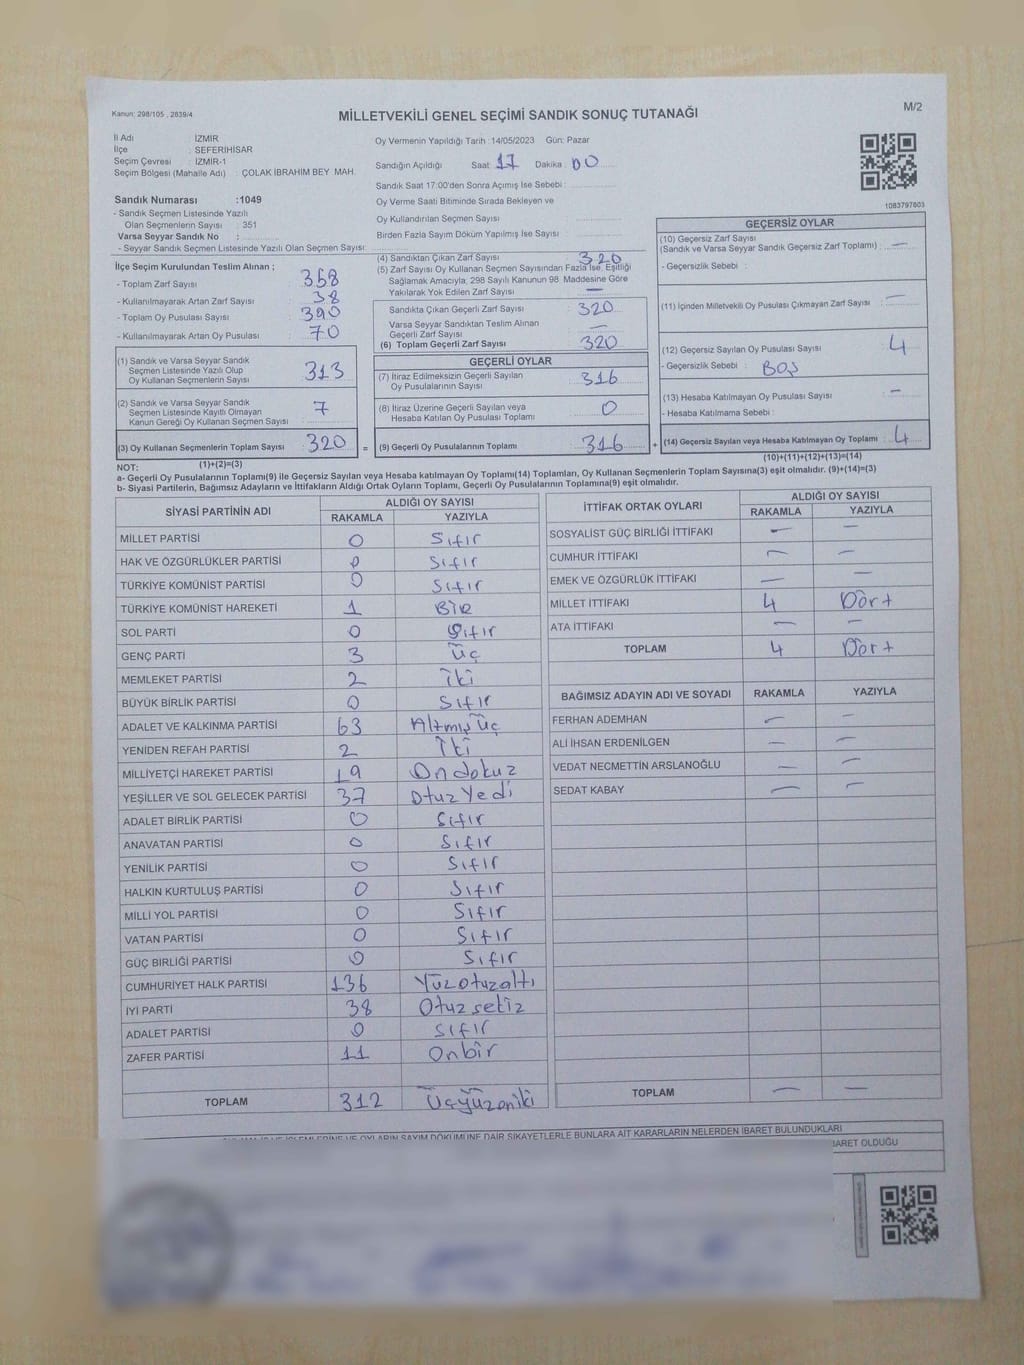 Kanun: 298/105 , 2839/4
MİLLETVEKİLİ GENEL SEÇİMİ SANDIK SONUÇ TUTANAĞI
M/2
İl Adı : İZMİR
İlçe : SEFERİHİSAR
Seçim Çevresi : İZMİR-1
Seçim Bölgesi (Mahalle Adı) : ÇOLAK İBRAHİM BEY MAH.
Oy Vermenin Yapıldığı Tarih :14/05/2023 Gün: Pazar
Sandığın Açıldığı Saat: 17 Dakika: 00
Sandık Saat 17:00'den Sonra Açımış İse Sebebi :
Oy Verme Saati Bitiminde Sırada Bekleyen ve
Oy Kullandırılan Seçmen Sayısı :
Birden Fazla Sayım Döküm Yapılmış İse Sayısı :
1083797803
Sandık Numarası :1049
- Sandık Seçmen Listesinde Yazılı
Olan Seçmenlerin Sayısı : 351
Varsa Seyyar Sandık No :
- Seyyar Sandık Seçmen Listesinde Yazılı Olan Seçmen Sayısı:
İlçe Seçim Kurulundan Teslim Alınan ;
- Toplam Zarf Sayısı : 358
- Kullanılmayarak Artan Zarf Sayısı : 38
- Toplam Oy Pusulası Sayısı : 390
- Kullanılmayarak Artan Oy Pusulası : 70
(1) Sandık ve Varsa Seyyar Sandık
Seçmen Listesinde Yazılı Olup
Oy Kullanan Seçmenlerin Sayısı : 313
(2) Sandık ve Varsa Seyyar Sandık
Seçmen Listesinde Kayıtlı Olmayan
Kanun Gereği Oy Kullanan Seçmen Sayısı : 7
(3) Oy Kullanan Seçmenlerin Toplam Sayısı : 320 =
(1)+(2)=(3)
(4) Sandıktan Çıkan Zarf Sayısı : 320
(5) Zarf Sayısı Oy Kullanan Seçmen Sayısından Fazla İse, Eşitliği
Sağlamak Amacıyla; 298 Sayılı Kanunun 98. Maddesine Göre
Yakılarak Yok Edilen Zarf Sayısı : —
Sandıkta Çıkan Geçerli Zarf Sayısı : 320
Varsa Seyyar Sandıktan Teslim Alınan
Geçerli Zarf Sayısı : —
(6) Toplam Geçerli Zarf Sayısı : 320
GEÇERLİ OYLAR
(7) İtiraz Edilmeksizin Geçerli Sayılan
Oy Pusulalarının Sayısı : 316
(8) İtiraz Üzerine Geçerli Sayılan veya
Hesaba Katılan Oy Pusulası Toplamı : 0
(9) Geçerli Oy Pusulalarının Toplamı : 316 +
GEÇERSİZ OYLAR
(10) Geçersiz Zarf Sayısı
(Sandık ve Varsa Seyyar Sandık Geçersiz Zarf Toplamı) : —
- Geçersizlik Sebebi :
(11) İçinden Milletvekili Oy Pusulası Çıkmayan Zarf Sayısı : —
(12) Geçersiz Sayılan Oy Pusulası Sayısı : 4
- Geçersizlik Sebebi : BOŞ
(13) Hesaba Katılmayan Oy Pusulası Sayısı : —
- Hesaba Katılmama Sebebi :
(14) Geçersiz Sayılan veya Hesaba Katılmayan Oy Toplamı : 4
(10)+(11)+(12)+(13)=(14)
NOT:
a- Geçerli Oy Pusulalarının Toplamı(9) ile Geçersiz Sayılan veya Hesaba katılmayan Oy Toplamı(14) Toplamları, Oy Kullanan Seçmenlerin Toplam Sayısına(3) eşit olmalıdır. (9)+(14)=(3)
b- Siyasi Partilerin, Bağımsız Adayların ve İttifakların Aldığı Ortak Oyların Toplamı, Geçerli Oy Pusulalarının Toplamına(9) eşit olmalıdır.
SİYASİ PARTİNİN ADI ALDIĞI OY SAYISI
RAKAMLA YAZIYLA
MİLLET PARTİSİ 0 Sıfır
HAK VE ÖZGÜRLÜKLER PARTİSİ 0 Sıfır
TÜRKİYE KOMÜNİST PARTİSİ 0 Sıfır
TÜRKİYE KOMÜNİST HAREKETİ 1 BİR
SOL PARTİ 0 Sıfır
GENÇ PARTİ 3 Üç
MEMLEKET PARTİSİ 2 İki
BÜYÜK BİRLİK PARTİSİ 0 Sıfır
ADALET VE KALKINMA PARTİSİ 63 Altmış Üç
YENİDEN REFAH PARTİSİ 2 İki
MİLLİYETÇİ HAREKET PARTİSİ 19 Ondokuz
YEŞİLLER VE SOL GELECEK PARTİSİ 37 Otuz Yedi
ADALET BİRLİK PARTİSİ 0 Sıfır
ANAVATAN PARTİSİ 0 Sıfır
YENİLİK PARTİSİ 0 Sıfır
HALKIN KURTULUŞ PARTİSİ 0 Sıfır
MİLLİ YOL PARTİSİ 0 Sıfır
VATAN PARTİSİ 0 Sıfır
GÜÇ BİRLİĞİ PARTİSİ 0 Sıfır
CUMHURİYET HALK PARTİSİ 136 Yüzotuzaltı
İYİ PARTİ 38 Otuz sekiz
ADALET PARTİSİ 0 Sıfır
ZAFER PARTİSİ 11 Onbir
TOPLAM 312 Üçyüzoniki
İTTİFAK ORTAK OYLARI ALDIĞI OY SAYISI
RAKAMLA YAZIYLA
SOSYALİST GÜÇ BİRLİĞİ İTTİFAKI — —
CUMHUR İTTİFAKI — —
EMEK VE ÖZGÜRLÜK İTTİFAKI — —
MİLLET İTTİFAKI 4 Dört
ATA İTTİFAKI — —
TOPLAM 4 Dört
BAĞIMSIZ ADAYIN ADI VE SOYADI RAKAMLA YAZIYLA
FERHAN ADEMHAN — —
ALİ İHSAN ERDENİLGEN — —
VEDAT NECMETTİN ARSLANOĞLU — —
SEDAT KABAY — —
TOPLAM — —
OYLARIN SAYIM DÖKÜMÜNE DAİR ŞİKAYETLERLE BUNLARA AİT KARARLARIN NELERDEN İBARET BULUNDUKLARI
İBARET OLDUĞU